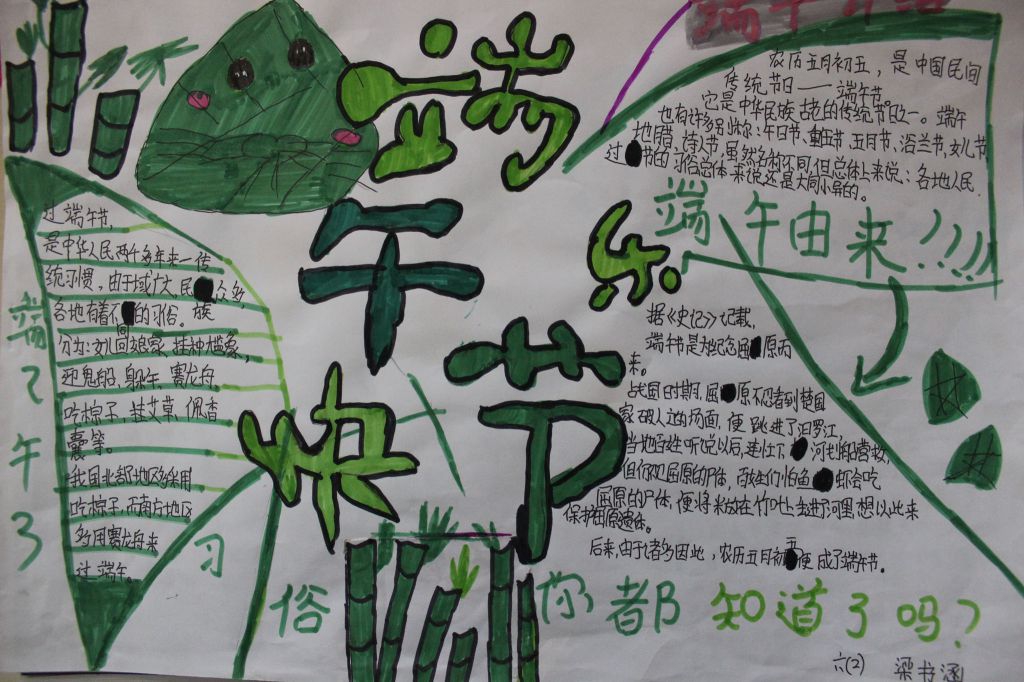 端午介绍
农历五月初五，是中国民间
传统节日——端午节。
它是中华民族古老的传统节日之一。端午
也有许多别称：午日节、重五节、五月节、浴兰节、女儿节
地腊、诗人节，虽然名称不同，但总体上来说：各地人民
过节的习俗总体来说还是大同小异的。
端午由来！！！
端
午
节
快
乐
过端午节，
是中华人民两千多年来一传
统习惯，由于域广大，民众多，
族
各地有着不的习俗。
同
分为：女儿回娘家，挂钟馗象，
迎鬼船、躲午、赛龙舟、
吃粽子、挂艾草、佩香
囊等。
我国北部地区多采用
吃粽子，而南方地区
多用赛龙舟来
过端午。
端
午
习
俗
你都知道了吗？
据《史记》记载，
端午节是为纪念屈原而
来。
战国日时期，屈原不忍看到楚国
家破人亡的场面，便跳进了汨罗江，
当地百姓听说以后，连忙下河划船营救，
但仍观屈原的尸体，百姓们怕鱼虾会吃
屈原的尸体，便将米放在竹叶上，丢进河里想以此来
保护屈原遗体。
五
后来，由于诸多因此，农历五月初便成了端午节。
六(2) 梁书涵